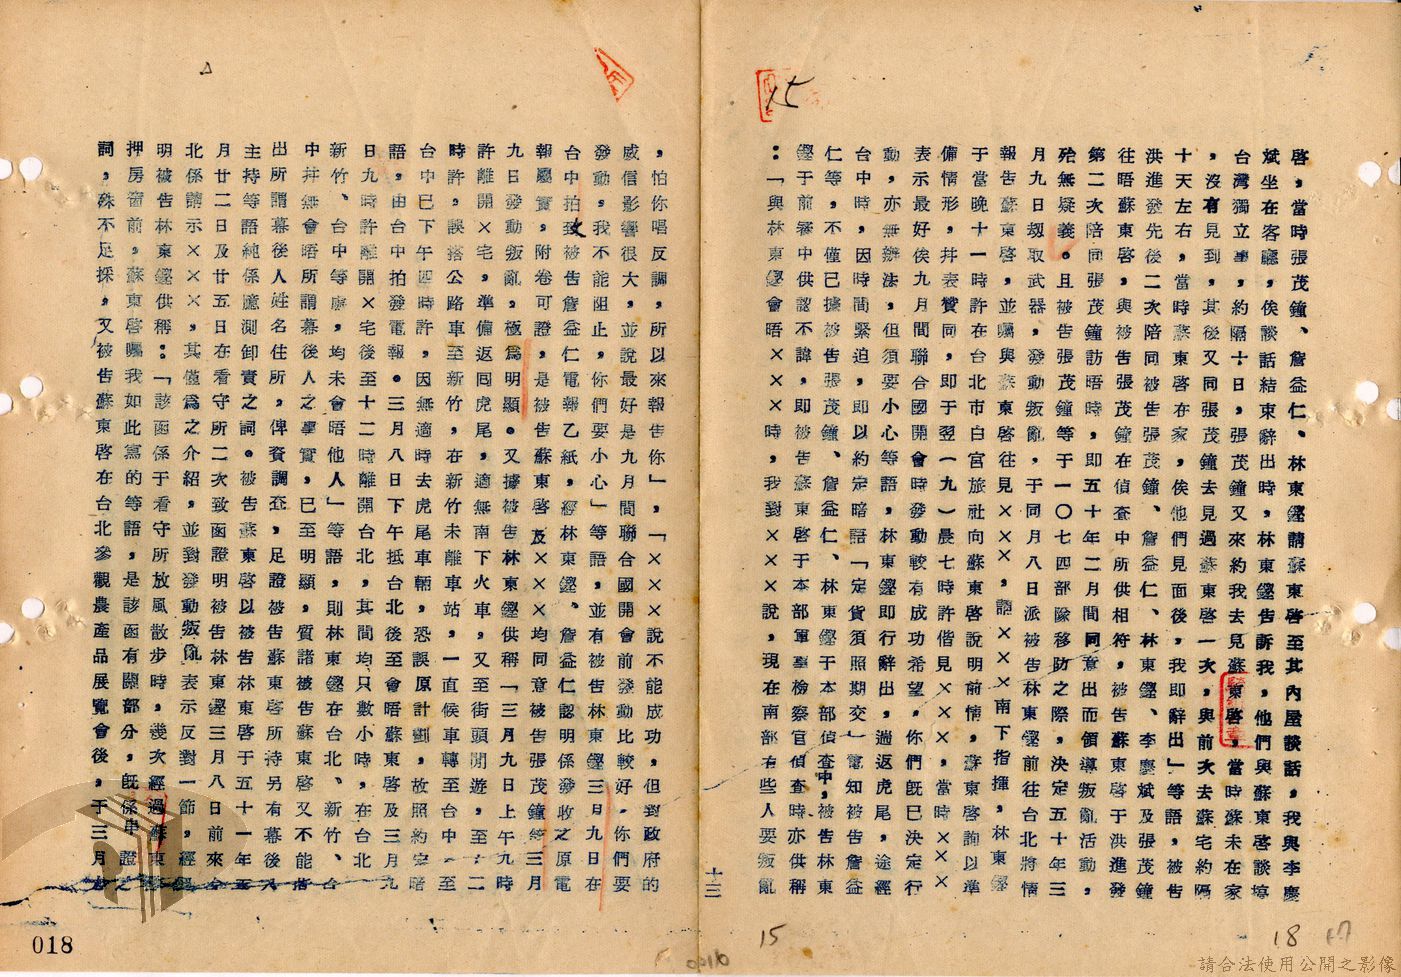 15
啓，當時張茂鐘、詹益仁、林東鏗請蘇東啓至其內屋談話，我與李慶
斌坐在客廳，俟談話結束辭出時，林東鏗告訴我，他們與蘇東啓談塲
台灣獨立事，約隔十日，張茂鐘又來約我去見蘇東啓，當時蘇未在家
，沒有見到，其後又同張茂鐘去見過蘇東啓一次，與前次去蘇宅約隔
十天左右，當時蘇東啓在家，俟他們見面後，我即辭出」等語，被告
洪進發先後二次陪同被告張茂鐘、詹益仁、林東鏗、李慶斌及張茂鐘
往晤蘇東啓，與被告張茂鐘在偵查中所供相符，被告蘇東啓于洪進發
第二次陪同張茂鐘訪晤時，即五十年二月間同意出而領導叛亂活動，
殆無疑義。且被告張茂鐘等于一〇七四部隊移防之際，決定五十年三
月九日刼取武器，發動叛亂，于同月八日派被告林東鏗前往台北將情
報告蘇東啓，並囑與蘇東啓往見×××，請×××南下指揮，林東鏗
于當晚十一時許在台北市白宮旅社向蘇東啓說明前情，蘇東啓詢以準
備情形，幷表贊同，即于翌（一九）晨七時許偕見×××，當時×××
表示最好俟九月間聯合國開會時發動較有成功希望，你們旣已決定行
動，亦無辦法，但須要小心等語，林東鏗即行辭出，遄返虎尾，途經
台中時，因時間緊迫，即以約定暗語「定貨須照期交」電知被告詹益
仁等，不僅已據被告張茂鐘、詹益仁、林東鏗于本部偵查中，被告林東
鏗于前審中供認不諱，即被告蘇東啓于本部軍事檢察官偵查時亦供稱
：「與林東鏗會晤×××時，我對×××說，現在南部有些人要叛亂
十三
，怕你唱反調，所以來報告你」，「×××說不能成功，但對政府的
威信影響很大，並說最好是九月間聯合國開會前發動比較好，你們要
發動，我不能阻止，你們要小心」等語，並有被告林東鏗三月九日在
台中拍致被告詹益仁電報乙紙，經林東鏗、詹益仁認明係發收之原電
報屬實，附卷可證，是被告蘇東啓及×××均同意被告張茂鐘等三月
九日發動叛亂，極爲明顯。又據被告林東鏗供稱「三月九日上午九時
許離開×宅，準備返囘虎尾，適無南下火車，又至街頭閒遊，至十二
時許，誤搭公路車至新竹，在新竹未離車站，一直候車轉至台中，至
台中已下午四時許，因無適時去虎尾車輛，恐誤原計劃，故照約定暗
語，由台中拍發電報。三月八日下午抵台北後至會晤蘇東啓及三月九
日九時許離開×宅後至十二時離開台北，其間均只數小時，在台北、
新竹、台中等處，均未會晤他人」等語，則林東鏗在台北、新竹、台
中幷無會晤所謂幕後人之事實，已至明顯，質諸被告蘇東啓又不能指
出所謂幕後人姓名住所，俾資調查，足證被告蘇東啓所持另有幕後人
主持等語純係臆測卸責之詞。被告蘇東啓以被告林東啓于五十一年五
月廿二日及廿五日在看守所二次致函證明被告林東鏗三月八日前來台
北係請示×××，其僅爲之介紹，並對發動叛亂表示反對一節，經
明被告林東鏗供稱：「該函係于看守所放風散步時，幾次經過蘇東啓
押房窗前，蘇東啓囑我如此寫的等語，是該函有關部分，旣係串證之
詞，殊不足採，又被告蘇東啓在台北參觀農產品展覽會後，于三月
018
15
18
請合法使用公開之影像